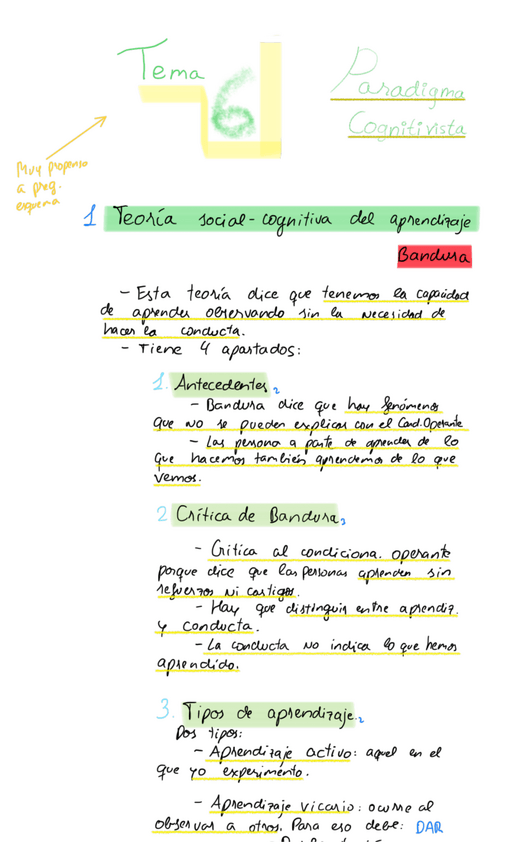 Tema 6
Paradigma
Cognitivista
Muy propenso
a preg.
esquema
1 Teoría social-cognitiva del aprendizaje
Bandura
- Esta teoría dice que tenemos la capacidad
de aprender observando sin la necesidad de
hacer la conducta.
- Tiene 4 apartados:
1. Antecedentes
- Bandura dice que hay fenómenos
que no se pueden explicar con el Cond. Operante
- Las persona a parte de aprender de lo
que hacemos también aprendemos de lo que
vemos.
2 Crítica de Bandura
- Critica al condiciona. operante
porque dice que las personas aprenden sin
refuerzos ni castigos.
- Hay que distinguir entre aprendiz.
y conducta.
- La conducta no indica lo que hemos
aprendido.
3. Tipos de aprendizaje
Dos tipos:
- Aprendizaje activo: aquel en el
que yo experimento.
- Aprendizaje vicario: ocurre al
observar a otros. Para eso debe: DAR